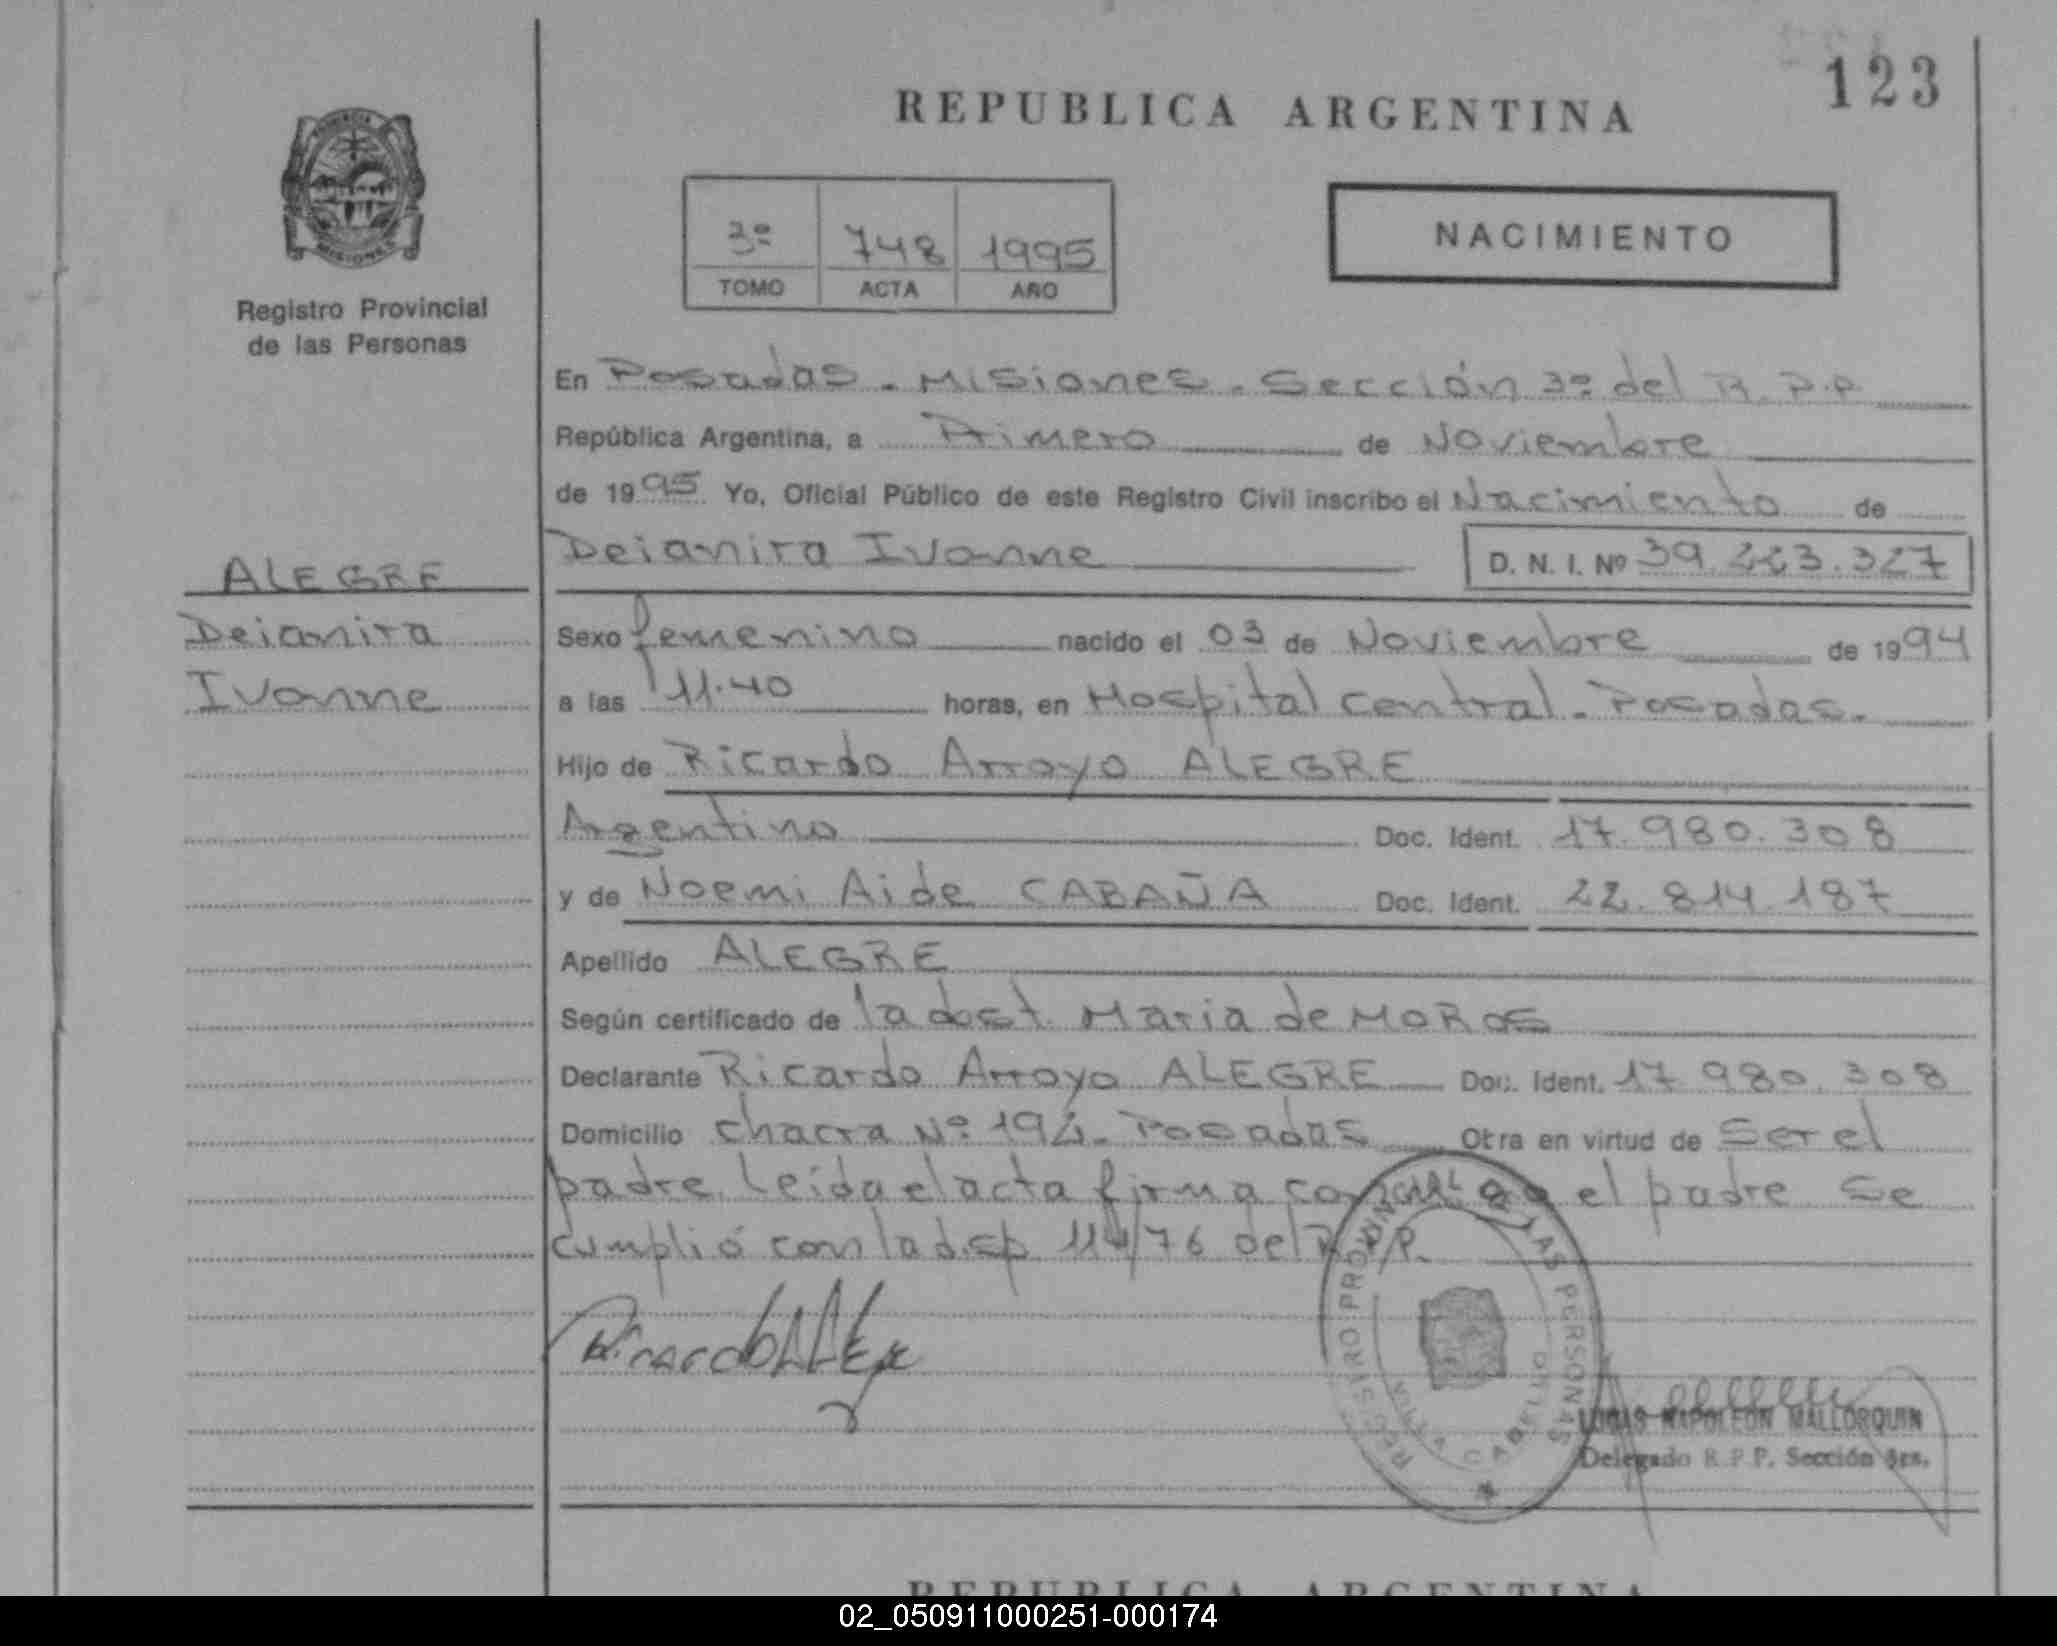 123
REPUBLICA ARGENTINA
PROVINCIA DE
MISIONES
Registro Provincial
de las Personas
3º 748 1995
TOMO ACTA AÑO
NACIMIENTO
En Posadas - Misiones - Sección 3º del R.P.P
República Argentina, a Primero de Noviembre
de 1995 Yo, Oficial Público de este Registro Civil inscribo el Nacimiento de
Deianira Ivonne D. N. I. Nº 39.223.327
ALEGRE
Deianira
Ivonne
Sexo femenino nacido el 03 de Noviembre de 1994
a las 11.40 horas, en Hospital Central - Posadas.
Hijo de Ricardo Arroyo ALEGRE
Argentino Doc. Ident. 17.980.308
y de Noemi Aide CABAÑA Doc. Ident. 22.814.187
Apellido ALEGRE
Según certificado de la obst. Maria de MOROS
Declarante Ricardo Arroyo ALEGRE Doc. Ident. 17.980.308
Domicilio chacra Nº 192 - Posadas Otra en virtud de Ser el
padre. Leida el acta firma el padre Se
cumplió con la disp 114/76 del R.P.P.
REGISTRO PROVINCIAL DE LAS PERSONAS
VILLA CABELLO
LUCAS NAPOLEON MALLORQUIN
Delegado R.P.P. Sección 3ra.
REPUBLICA ARGENTINA
02_050911000251-000174